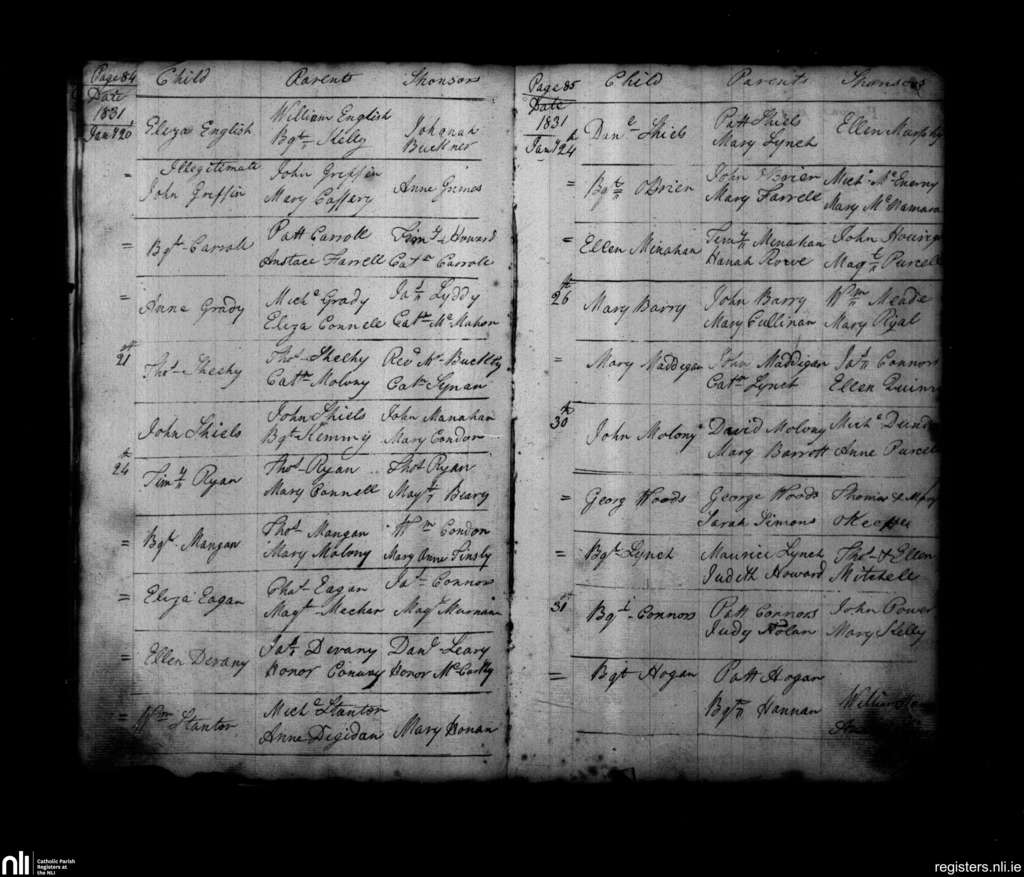 Page 84 Child Parents Sponsors
Date
1831
Jany 20 Eliza English William English Johanah
Bgt Kelly Buckner
Illegitimate
= John Griffin John Griffin Anne Grimes
Mary Caffery
= Bgt Carroll Patt Carroll Timy Howard
Anstace Farrell Catn Carroll
= Anne Grady Michl Grady Jas Lyddy
Eliza Connell Catn McMahon
21st Thos Sheehy Thos Sheehy Revd Mr Buckley
Catn Molony Catn Synan
John Shiels John Shiels John Manahan
Bgt Kemmy Mary Condon
24th Timy Ryan Thos Ryan Thos Ryan
Mary Connell Magt Beary
= Bgt Mangan Thos Mangan Wm Condon
Mary Malony Mary Anne Finsly
= Eliza Eagan Thos Eagan Jas Connors
Magt Meehar Magt
= Ellen Devany Jas Devany Danl Leary
Honor Conway Honor McCarthy
= Wm Stantor Michl Stantor Mary Honan
Anne Digidan
Page 85 Child Parents Sponsors
Date
1831
Jany 24th Danl Shiels Patt Shiels Ellen Murphy
Mary Lynch
= Bgt OBrien John OBrien Michl McEnerny
Mary Farrell Mary McNamara
= Ellen Minahan Timy Menahan John
Hanah Rowe Magt Purcell
26th Mary Barry John Barry Wm Meade
Mary Cullinan Mary Ryal
= Mary Maddigan John Maddigan Jas Connors
Catn Lynch Ellen Quinn
30th John Molony David Molony Michl
Mary Barrott Anne Purcell
= Georg Woods George Woods Thomas & Mary
Sarah Simons OKeeffe
= Bgt Lynch Maurice Lynch Thos & Ellen
Judith Howard Mitchell
31st Bgt Connors Patt Connors John Power
Judy Nolan Mary Kelly
= Bgt Hogan Patt Hogan
Bgt Hannan
nli Catholic Parish
Registers at
the NLI
registers.nli.ie